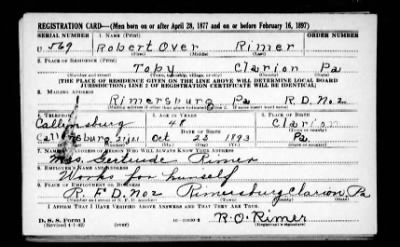 REGISTRATION CARD—(Men born on or after April 28, 1877 and on or before February 16, 1897)
SERIAL NUMBER 1. NAME (Print) ORDER NUMBER
U 569 Robert Over Rimer
(First) (Middle) (Last)
2. PLACE OF RESIDENCE (Print)
Toby Clarion Pa
(Number and street) (Town, township, village, or city) (County) (State)
[THE PLACE OF RESIDENCE GIVEN ON THE LINE ABOVE WILL DETERMINE LOCAL BOARD
JURISDICTION; LINE 2 OF REGISTRATION CERTIFICATE WILL BE IDENTICAL]
3. MAILING ADDRESS
Rimersburg Pa R.D. No 2
4. TELEPHONE 5. AGE IN YEARS 6. PLACE OF BIRTH
Callensburg 48 Clarion
DATE OF BIRTH
Oct 23 1893 Pa
7. NAME AND ADDRESS OF PERSON WHO WILL ALWAYS KNOW YOUR ADDRESS
Mrs. Gertrude Rimer
8. EMPLOYER'S NAME AND ADDRESS
Works for himself
9. PLACE OF EMPLOYMENT OR BUSINESS
R. F D. No 2 Rimersburg Clarion, Pa
(Number and street or R. F. D. number) (Town) (County) (State)
I AFFIRM THAT I HAVE VERIFIED ABOVE ANSWERS AND THAT THEY ARE TRUE.
D. S. S. Form 1
(Revised 4-1-42) (over)
R.O. Rimer
(Registrant's signature)